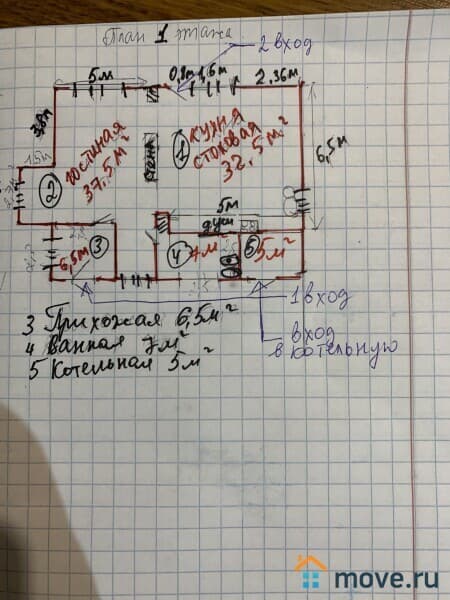 План 1 этажа
2 вход
5м
0,8м 1,6м
2,36м
гостиная
37.5м²
2
1
кухня
стоковая
32.5м²
6,5м
5м
душ
3
6,5м
4
7м²
5
5м²
1 вход
вход
в котельную
3 Прихожая 6,5м²
4 Ванная 7м²
5 Котельная 5м²
move.ru